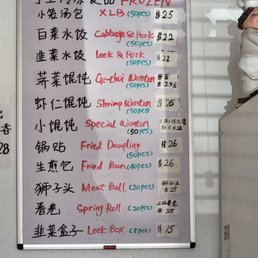 FROZEN
小笼汤包 XLB (50pcs) $25
白菜水饺 Cabbage & Pork (50pcs) $22
韭菜水饺 Leek & Pork (50pcs) $22
荠菜馄饨 Ge-chai Wonton (50pcs)
虾仁馄饨 Shrimp Wonton (50pcs) $26
小馄饨 Special Wonton (50pcs)
锅贴 Fried Dumpling (50pcs) $26
生煎包 Fried Bun (40pcs) $26
狮子头 Meat Ball (20pcs) $25
春卷 Spring Roll (20pcs) $25
韭菜盒子 Leek Box (15pcs) $15
28